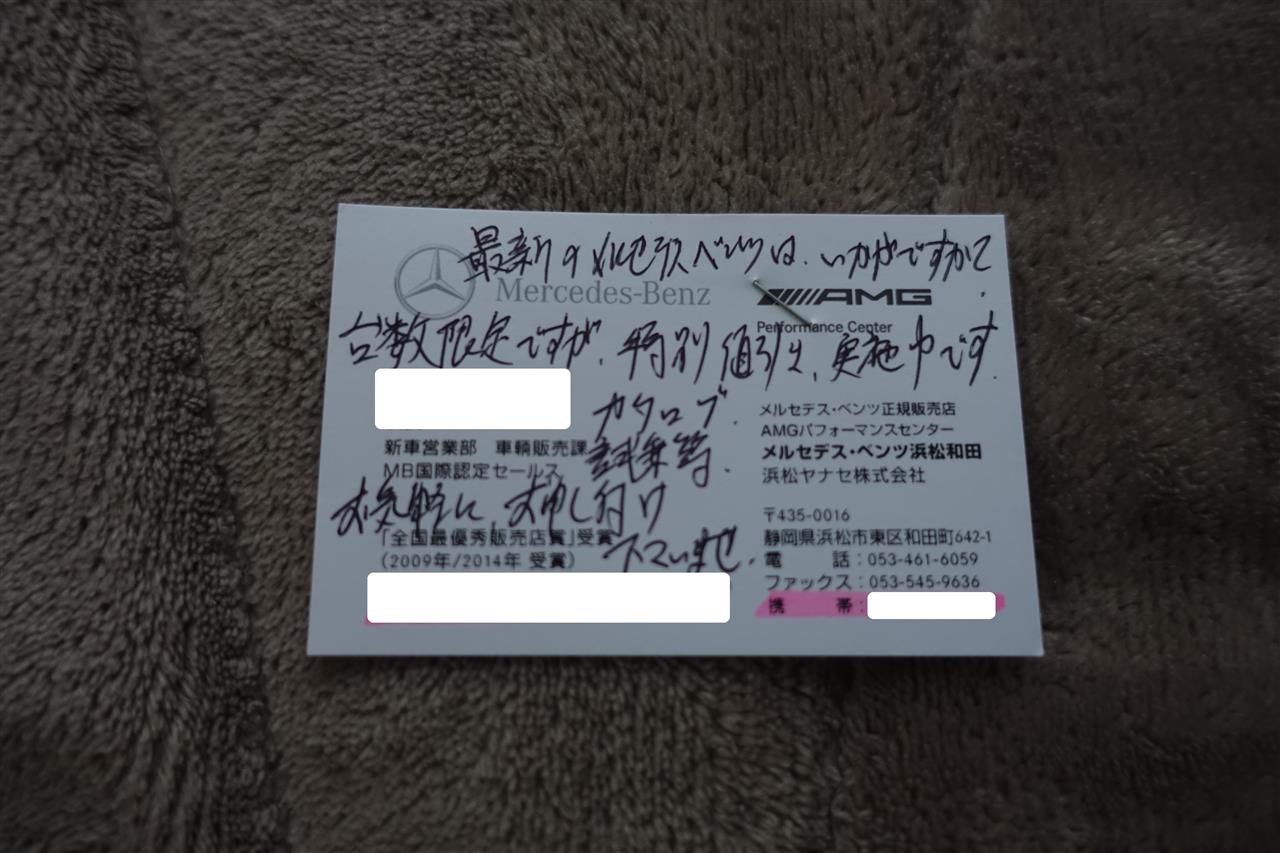 最新のメルセデスベンツは、いかがですか?
Mercedes-Benz
AMG
Performance Center
台数限定ですが、特別値引き、実施中です.
カタログ、
試乗等、
お気軽に、お申し付け
下さいませ.
新車営業部 車輌販売課
MB国際認定セールス
「全国最優秀販売店賞」受賞
(2009年/2014年 受賞)
メルセデス・ベンツ正規販売店
AMGパフォーマンスセンター
メルセデス・ベンツ浜松和田
浜松ヤナセ株式会社
〒435-0016
静岡県浜松市東区和田町642-1
電 話:053-461-6059
ファックス:053-545-9636
携 帯: